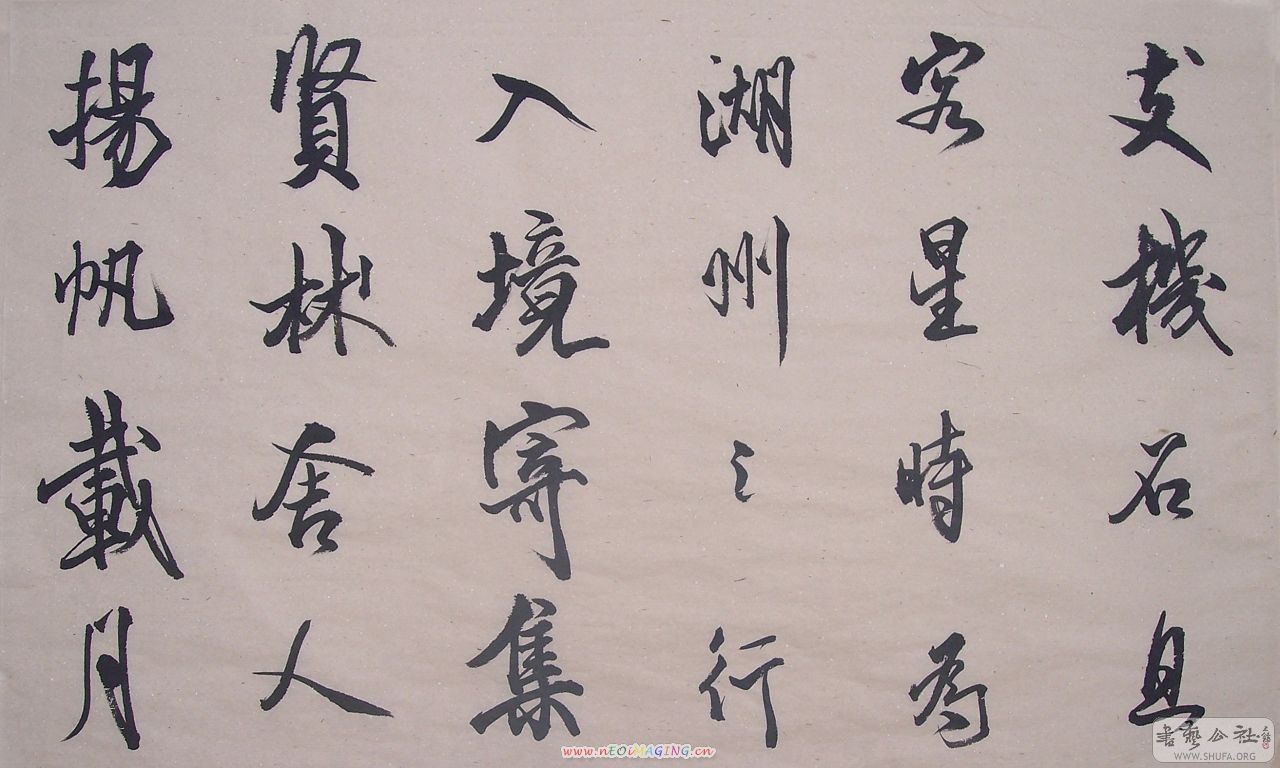 支機石且
客星時為
湖州之行
入境寄集
賢林舍人
揚帆載月
www.nEOiMAGING.cn
書藝公社
WWW.SHUFA.ORG